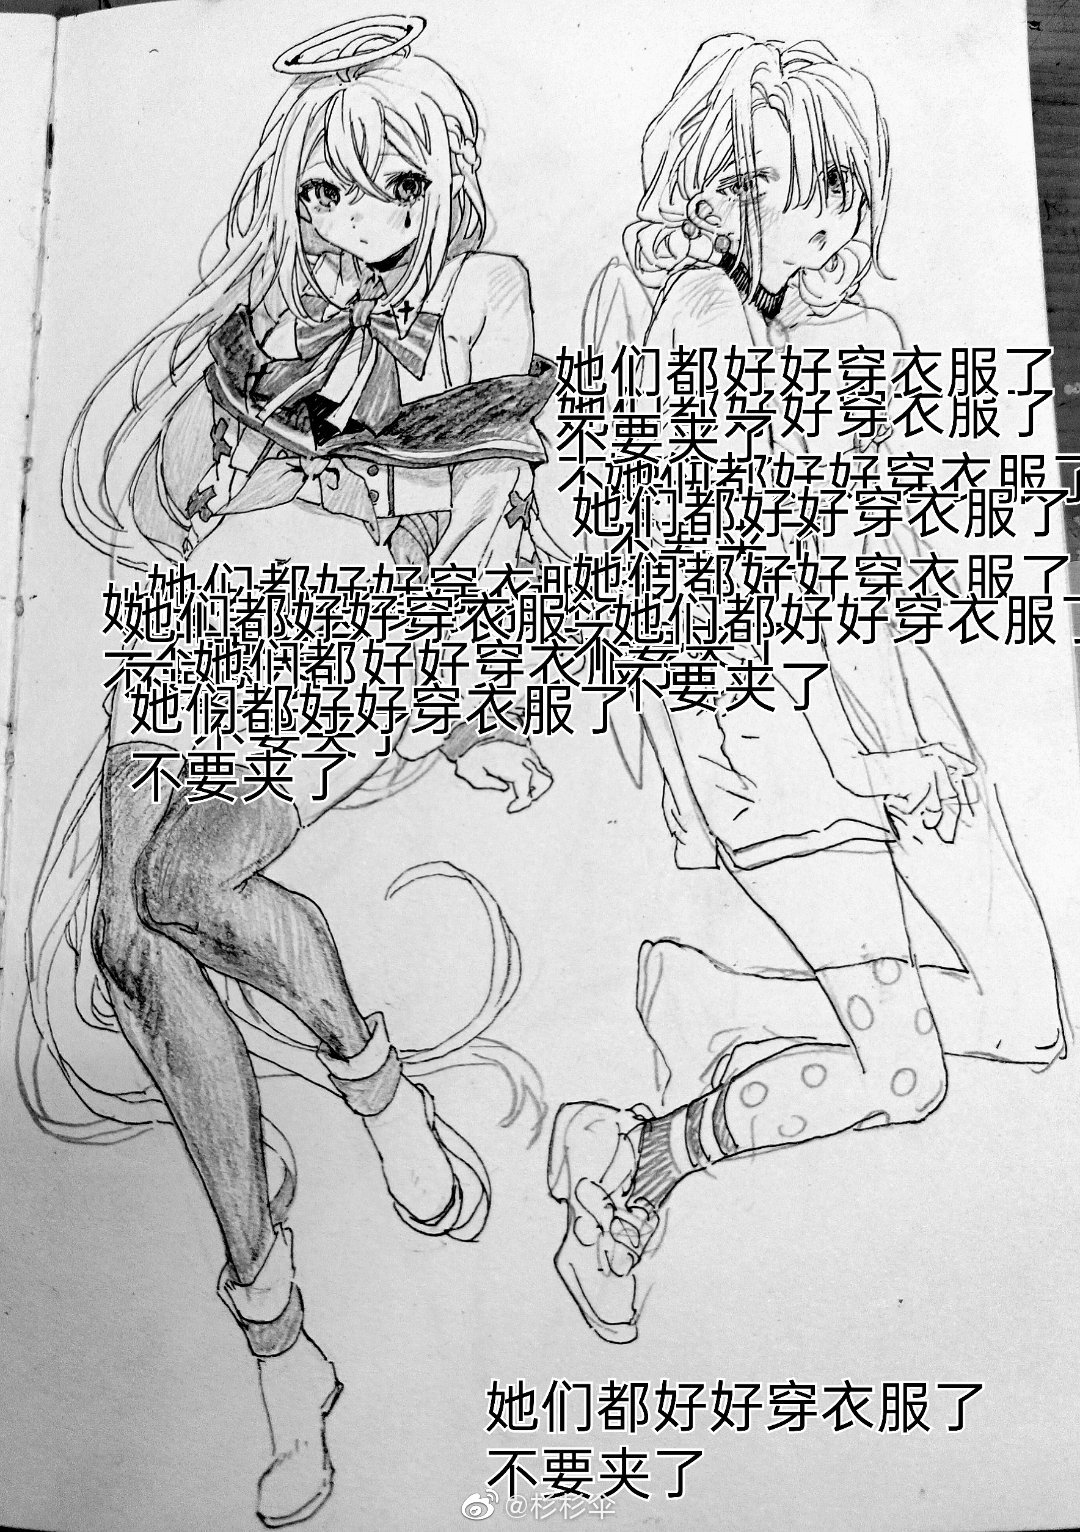 她们都好好穿衣服了
她们都好好穿衣服了
不要夹了
她们都好好穿衣服了
她们都好好穿衣服了
她们都好好穿衣服了
她们都好好穿衣服了
她们都好好穿衣服
她们都好好穿衣服了
她们都好好穿衣服
不要夹了
她们都好好穿衣服了
不要夹了
不要夹了
她们都好好穿衣服了
不要夹了
@杉杉伞